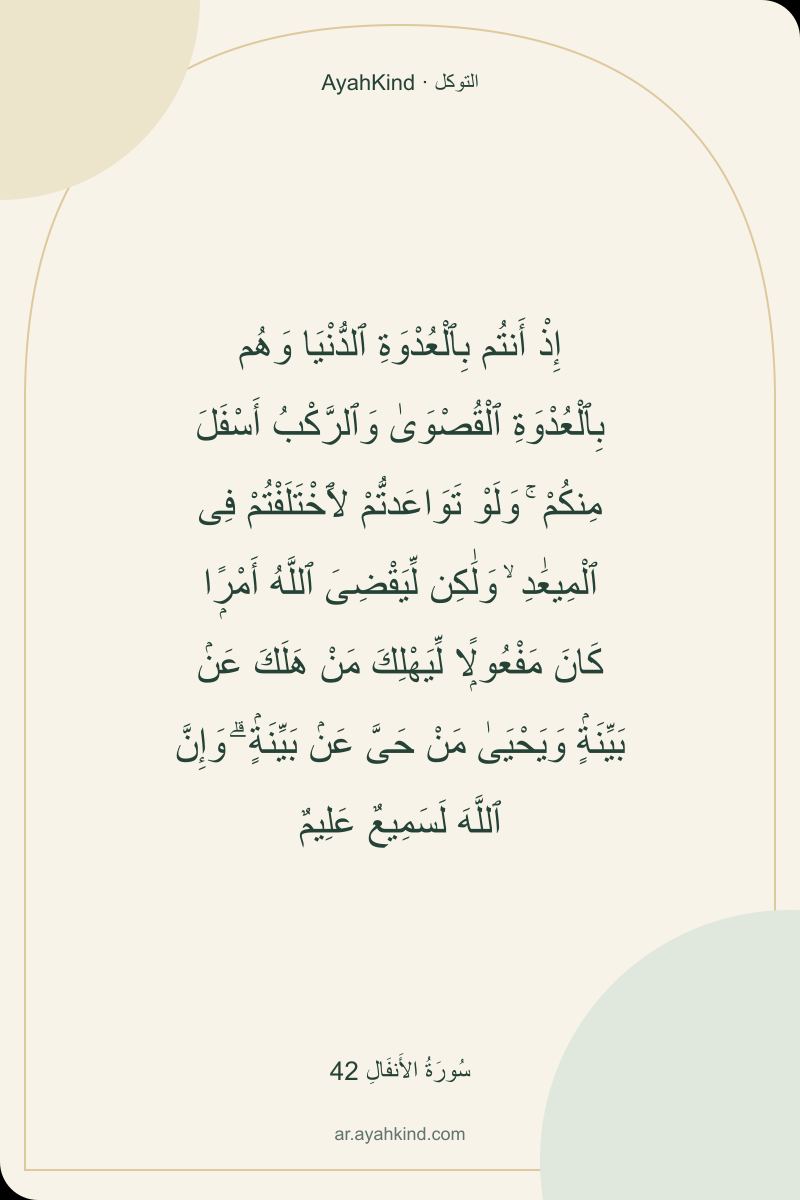 التوكل · AyahKind
إِذْ أَنتُم بِٱلْعُدْوَةِ ٱلدُّنْيَا وَهُم
بِٱلْعُدْوَةِ ٱلْقُصْوَىٰ وَٱلرَّكْبُ أَسْفَلَ
مِنكُمْ ۚ وَلَوْ تَوَاعَدتُّمْ لَٱخْتَلَفْتُمْ فِى
ٱلْمِيعَٰدِ ۙ وَلَٰكِن لِّيَقْضِىَ ٱللَّهُ أَمْرًۭا
كَانَ مَفْعُولًۭا لِّيَهْلِكَ مَنْ هَلَكَ عَنۢ
بَيِّنَةٍۢ وَيَحْيَىٰ مَنْ حَىَّ عَنۢ بَيِّنَةٍۢ ۗ وَإِنَّ
ٱللَّهَ لَسَمِيعٌ عَلِيمٌ
سُورَةُ الأَنفَالِ 42
ar.ayahkind.com